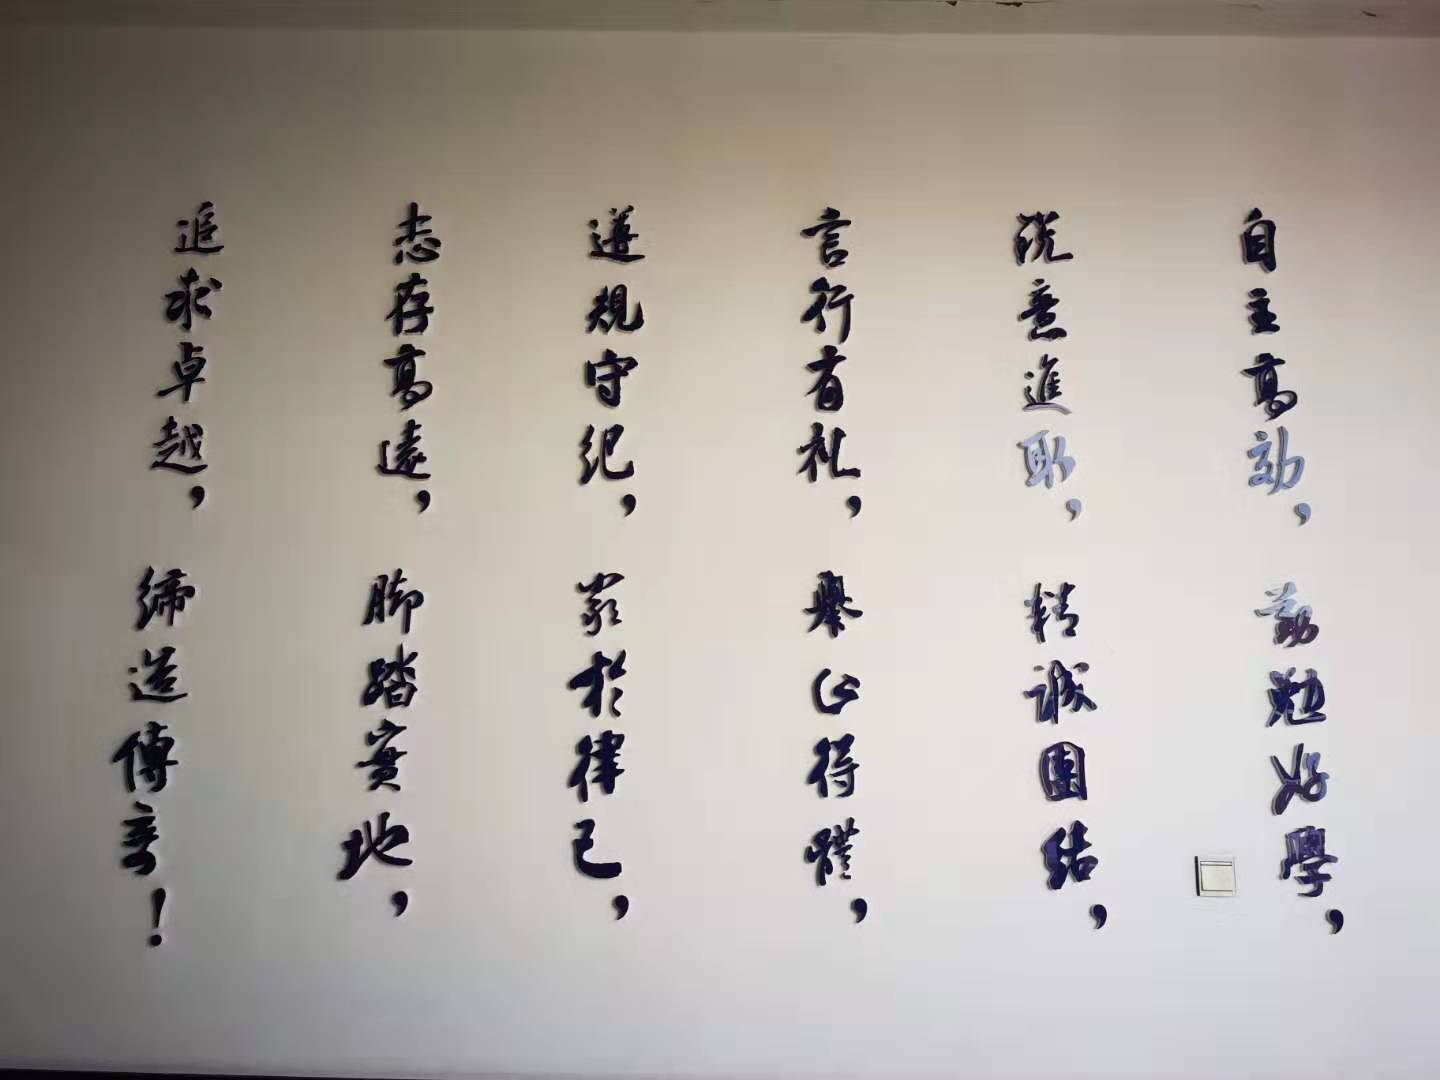 自主高効，勤勉好學，
锐意進取，精誠團结，
言行有礼，舉止得體，
遵規守纪，严於律己，
志存高遠，脚踏實地，
追求卓越，缔造傳奇！